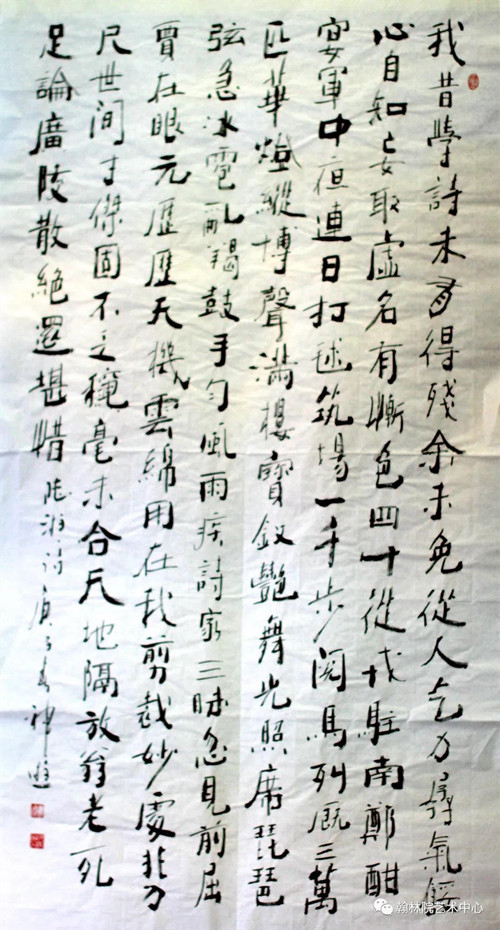 我昔學詩未有得殘余未免從人乞力孱氣餒
心自知妄取虛名有慚色四十從戎駐南鄭酣
宴軍中夜連日打毬筑場一千步閱馬列厩三萬
匹華燈縱博聲滿樓寶釵艷舞光照席琵琶
弦急冰雹亂羯鼓手勻風雨疾詩家三昧忽見前屈
賈在眼元歷歷天機雲錦用在我剪裁妙處非刀
尺世間才傑固不乏穐毫未合天地隔放翁老死
足論廣陵散絕還堪惜陸游詩庚子春神
翰林院艺术中心